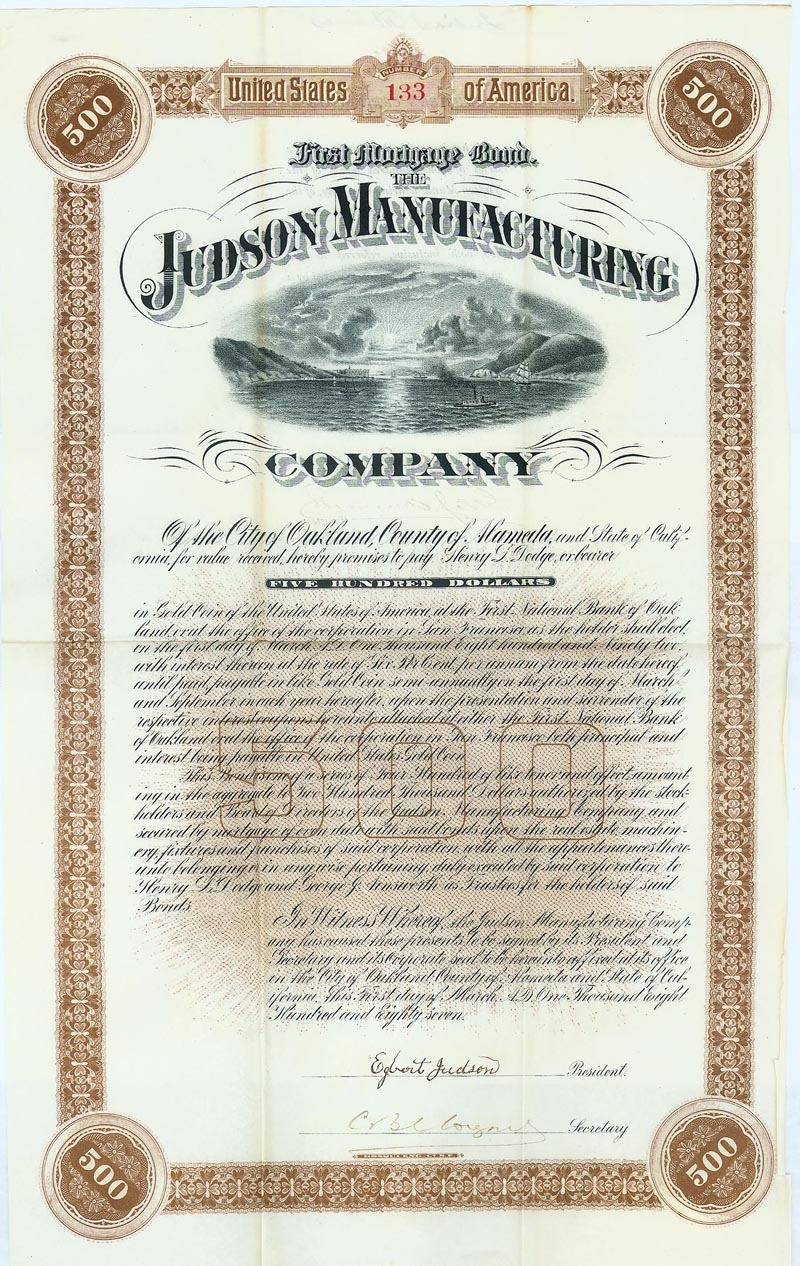 500
United States
NUMBER
133
of America.
500
First Mortgage Bond.
THE
JUDSON MANUFACTURING
COMPANY
Of the City of Oakland, County of Alameda, and State of Calif-
ornia, for value received, hereby promises to pay Henry L. Dodge, or bearer
FIVE HUNDRED DOLLARS
in Gold Coin of the United States of America, at the First National Bank of Oak
land, or at the office of the corporation in San Francisco, as the holder shall elect,
on the first day of March, A.D. One Thousand Eight hundred and Ninety two,
with interest thereon at the rate of Six Per Cent. per annum from the date hereof
until paid, payable in like Gold Coin semi-annually on the first day of March
and September in each year hereafter, upon the presentation and surrender of the
respective interest coupons hereunto attached at either the First National Bank
of Oakland or at the office of the corporation in San Francisco both principal and
interest being payable in United States Gold Coin.
500
This Bond is one of a series of Four Hundred of like tenor and effect, amount
ing in the aggregate to Two Hundred Thousand Dollars authorized by the stock-
holders and Board of Directors of the Judson Manufacturing Company, and
secured by mortgage of even date with said bonds upon the real estate, machin-
ery, fixtures and franchises of said corporation, with all the appertenances there-
unto belonging or in any wise pertaining, duly executed by said corporation to
Henry L. Dodge and George J. Ainsworth as Trustees for the holders of said
Bonds.
In Witness Whereof, the Judson Manufacturing Comp-
any has caused these presents to be signed by its President and
Secretary and its Corporate seal to be hereinto affixed at its office
in the City of Oakland, County of Alameda and State of Cal-
ifornia, this First day of March, A.D. One Thousand Eight
Hundred and Eighty seven.
Egbert Judson President.
Secretary
500
500